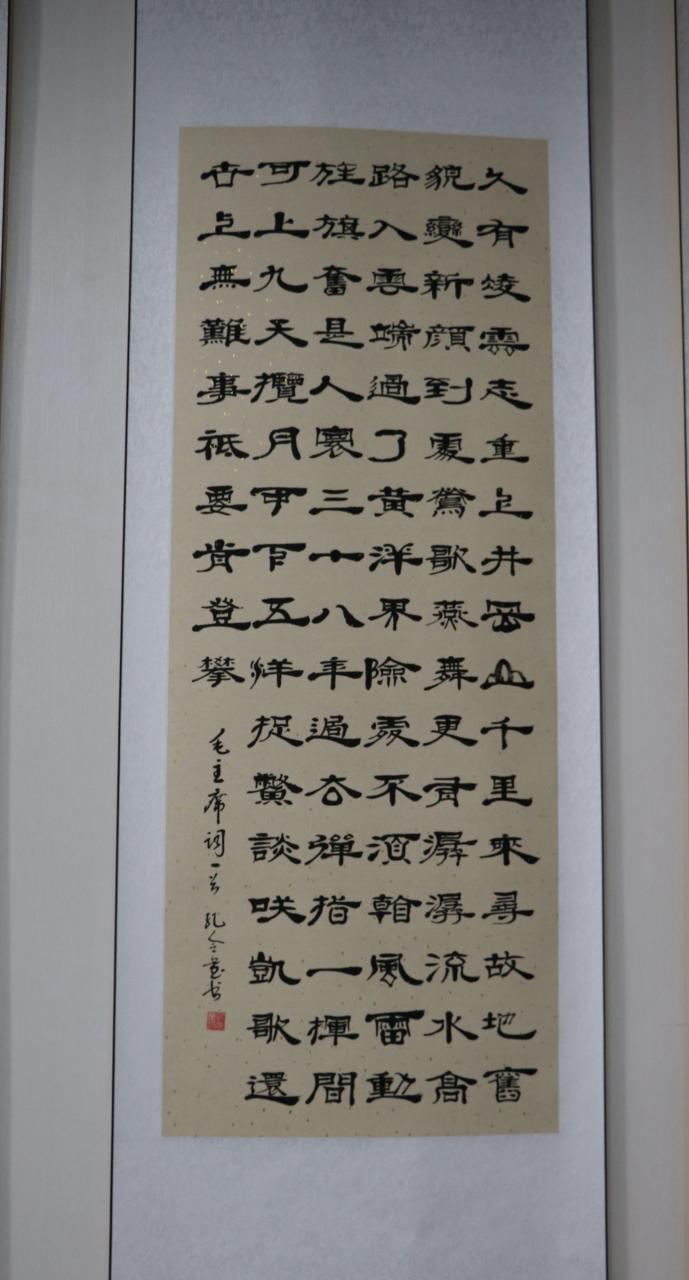 久有凌雲志重上井岡山千里來尋故地舊
貌變新顔到處鶯歌燕舞更有潺潺流水高
路入雲端過了黃洋界險處不須看風雷動
旌旗奮是人寰三十八年過去彈指一揮間
可上九天攬月可下五洋捉鱉談咲凱歌還
世上無難事祗要肯登攀
毛主席詞一首 孔令書